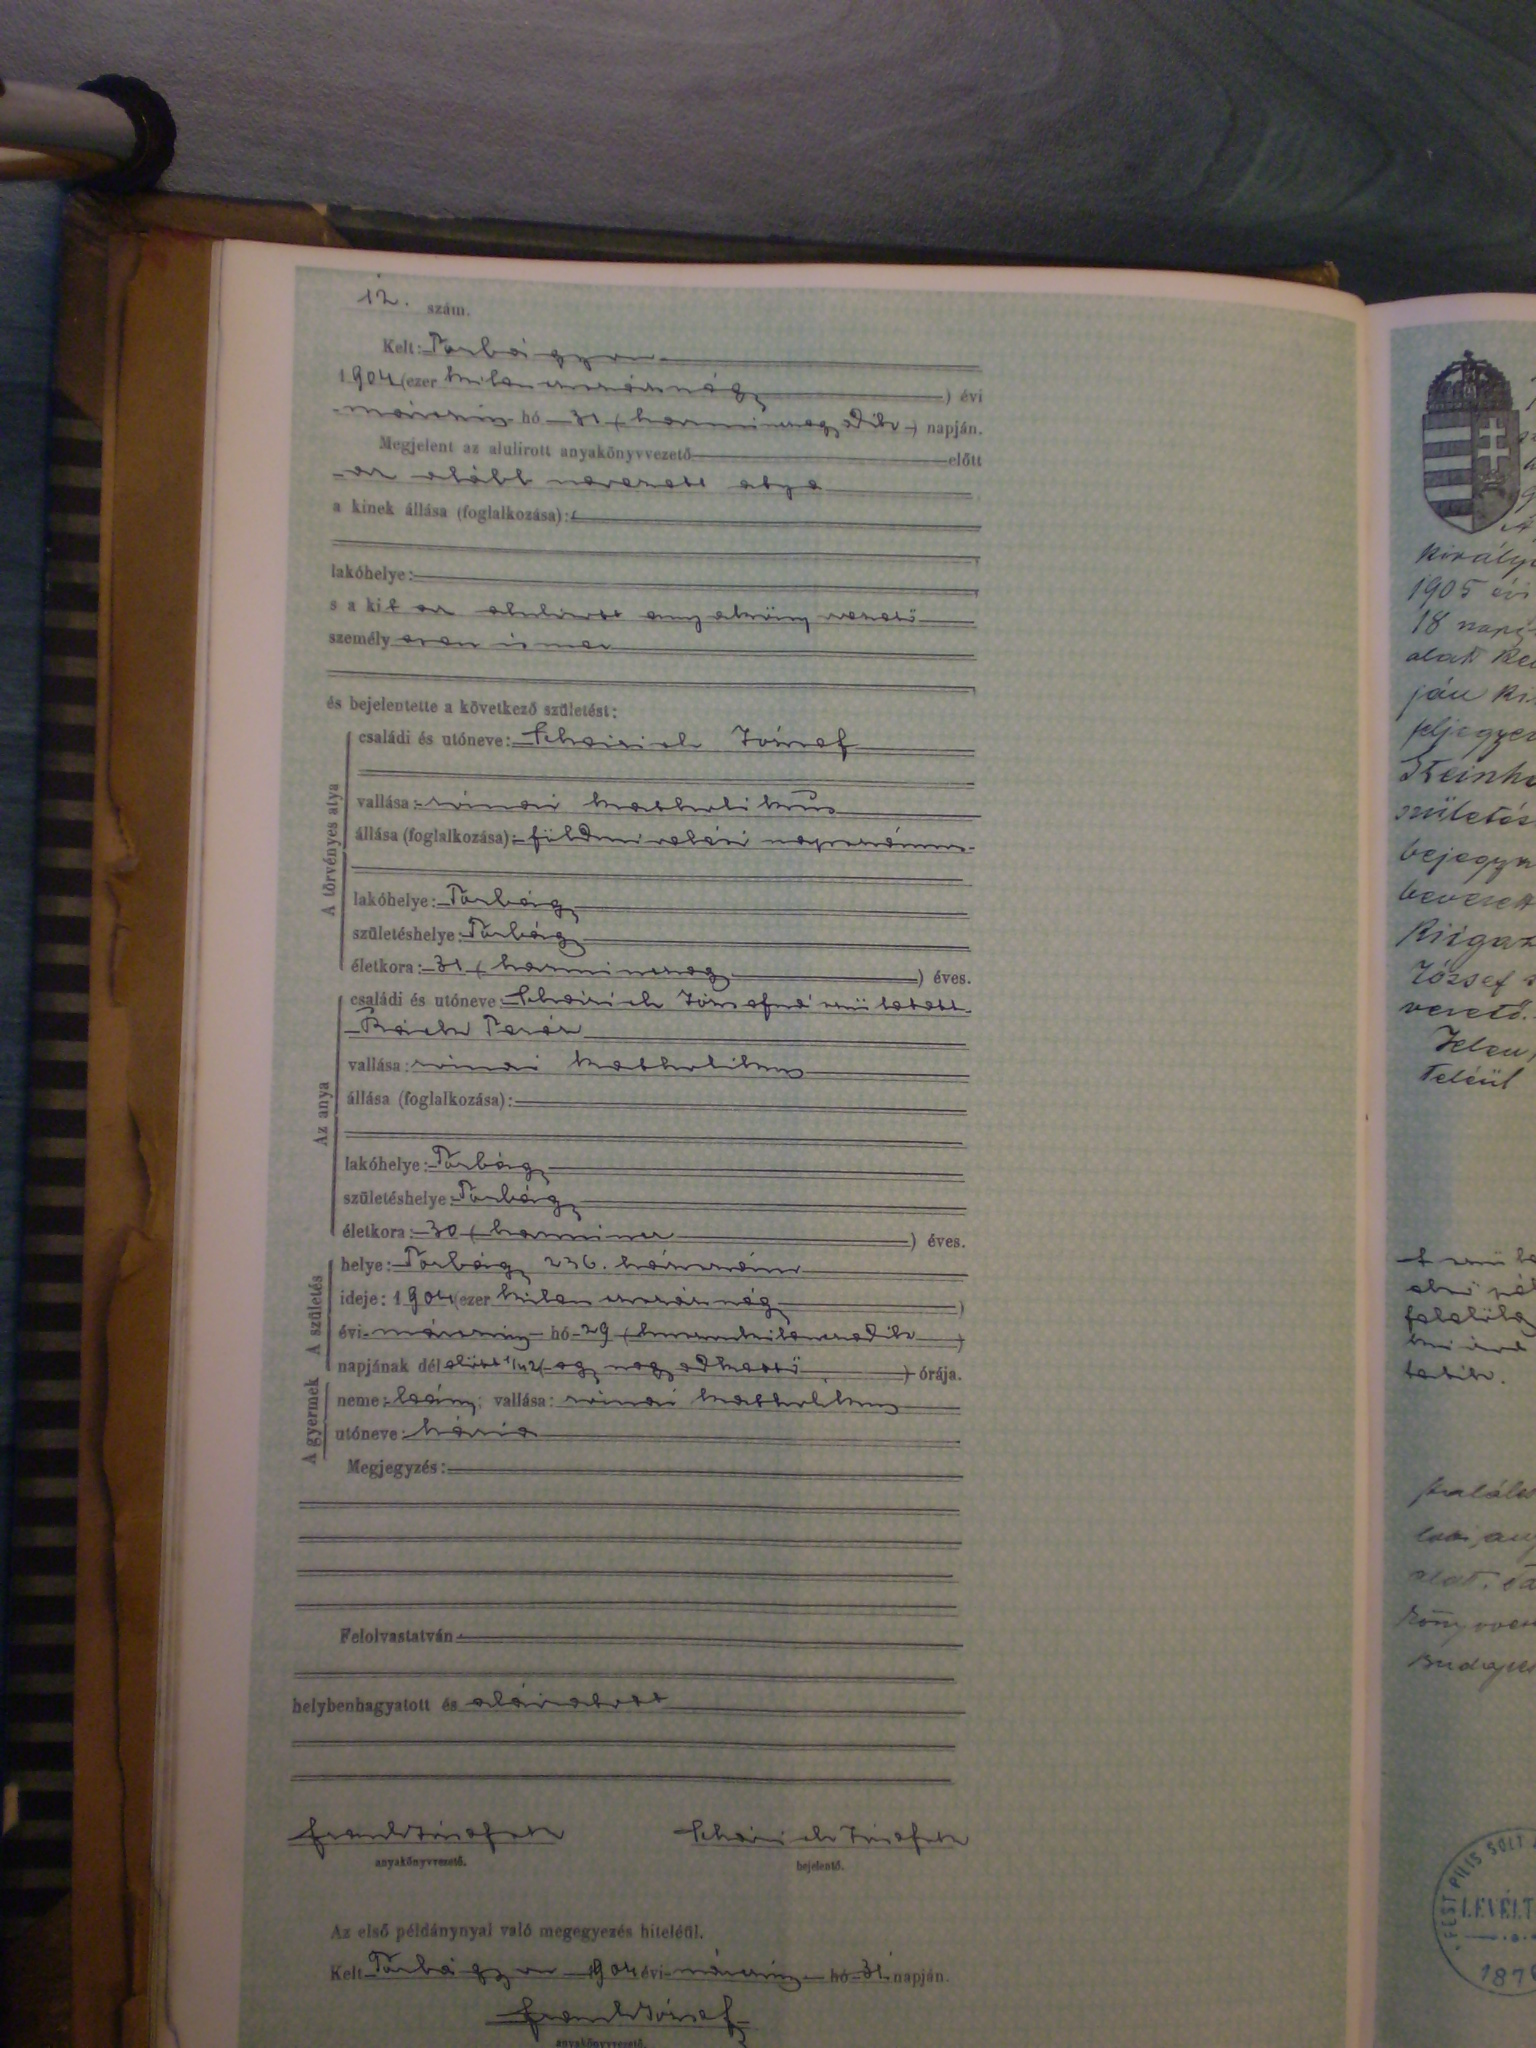 12. szám.
Kelt: Torbágyon
1904 (ezer kilencszáznégy) évi
márczius hó 31 (harminczegyedik) napján.
Megjelent az alulirott anyakönyvvezető előtt
az alább nevezett atya
a kinek állása (foglalkozása):
lakóhelye:
s a kit az alulirott anyakönyvvezető
személyesen ismer
és bejelentette a következő születést:
A törvényes atya
családi és utóneve: Scheirich József
vallása: római katholikus
állása (foglalkozása): földmivelési napszámos
lakóhelye: Torbágy
születéshelye: Torbágy
életkora: 31 (harminczegy) éves.
Az anya
családi és utóneve: Scheirich Józsefné született
Teréz
vallása: római katholikus
állása (foglalkozása):
lakóhelye: Torbágy
születéshelye: Torbágy
életkora: 30 (harmincz) éves.
A születés
helye: Torbágy 236. házszám
ideje: 1904 (ezer kilenczszáznégy)
évi márczius hó 29 (huszonkilenczedik)
napjának délelőtt 1/42 (egy negyedkettő) órája.
A gyermek
neme: leány; vallása: római katholikus
utóneve: Mária
Megjegyzés:
Felolvastatván
helybenhagyatott és aláiratott
Frank József sk
anyakönyvvezető.
Scheirich József sk
bejelentő.
Az első példánynyal való megegyezés hiteléül.
Kelt Torbágyon 1904 évi márczius hó 31 napján.
Frank József
anyakönyvvezető.
király
1905 évi
18 napj
alatt
ján
József
vezető.
Jelen
PEST PILIS SOLT
LEVÉLT
187